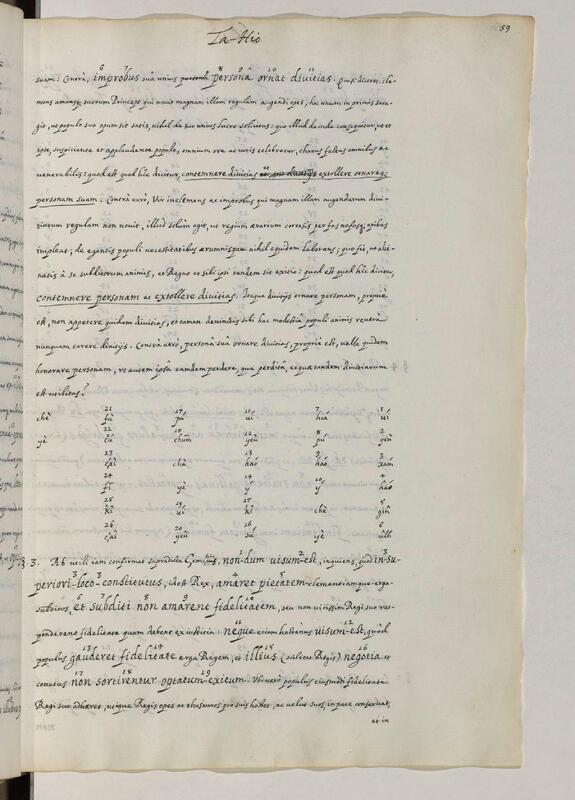 59
Ta-Hio
suam: Contrà, improbus suâ unius personâ ornat divitias. Quasi diceret: cle-
mens amansq; suorum Princeps qui novit magnam illam regulam augendi opes, hoc unum in primis sata-
git, ut populo suo opum sit satis, nihil de suo unius lucro solicitus: quo illud deinde consequitur, ut et
ipse, suspiciente et applaudente populo, omnium ore ac votis celebretur, charus factus omnibus ac
venerabilis: quod est quod hîc dicitur, contemnere divitias extollere ornareq;
personam suam. Contrà verò, Vir inclemens ac improbus qui magnam illam augendarum divi-
tiarum regulam non novit, illud solùm agit, ut regium ærarium corrasis per fas nefasq; opibus
impleat; de egentis populi necessitatibus ærumnisque nihil quidem laborans; quo fit, ut alie-
natis à se subditorum animis, et Regno et sibi ipsi tandem sit exitio: quod est quod hîc dicitur,
contemnere personam et extollere divitias. Itaque divitijs ornare personam, propriè
est, non appetere quidem divitias, et tamen devinctis sibi hac modestiâ populi animis reverâ
nunquam carere divitijs. Contrà verò, personâ suâ ornare divitias, propriè est, velle quidem
honorare personam, re autem ipsâ eamdem perdere, quâ perditâ, ecquæ tandem divitiarum
est utilitas?
chè 21 fù 17 pú 11 úi 7 hiá 1 úi
yè 22 cú 18 chum 12 yeù 8 pú 2 yeù
23 çâi chè 13 haó 9 haó 3 xám
24 fi yè 14 ý 10 ý 4 haó
25 kî 19 úi 15 kî chè 5 gîn
26 çâi 20 yeù 16 sú yè 6 ûlh
§. 3. Ab utili iam confirmat supradicta Cemçùs, non-dum visum-est, inquiens, quòd in-su-
periori-loco-constitutus, idest Rex, amaret pietatem clementiamque erga
subditos, et subditi non amarent fidelitatem, seu non vicissim Regi suo res-
ponderent fidelitate quam debent ex iustitia: neque etiam hactenus visum-est, quòd
populus gauderet fidelitate erga Regem, et illius (scilicet Regis) negotia et
conatus non sortirentur optatum-exitum. Ubi verò populus eiusmodi fidelitate
Regi suo adhæret, utique Regis opes ac thesauros pro suis habet, ac velut suos, in pace conservat,
et in